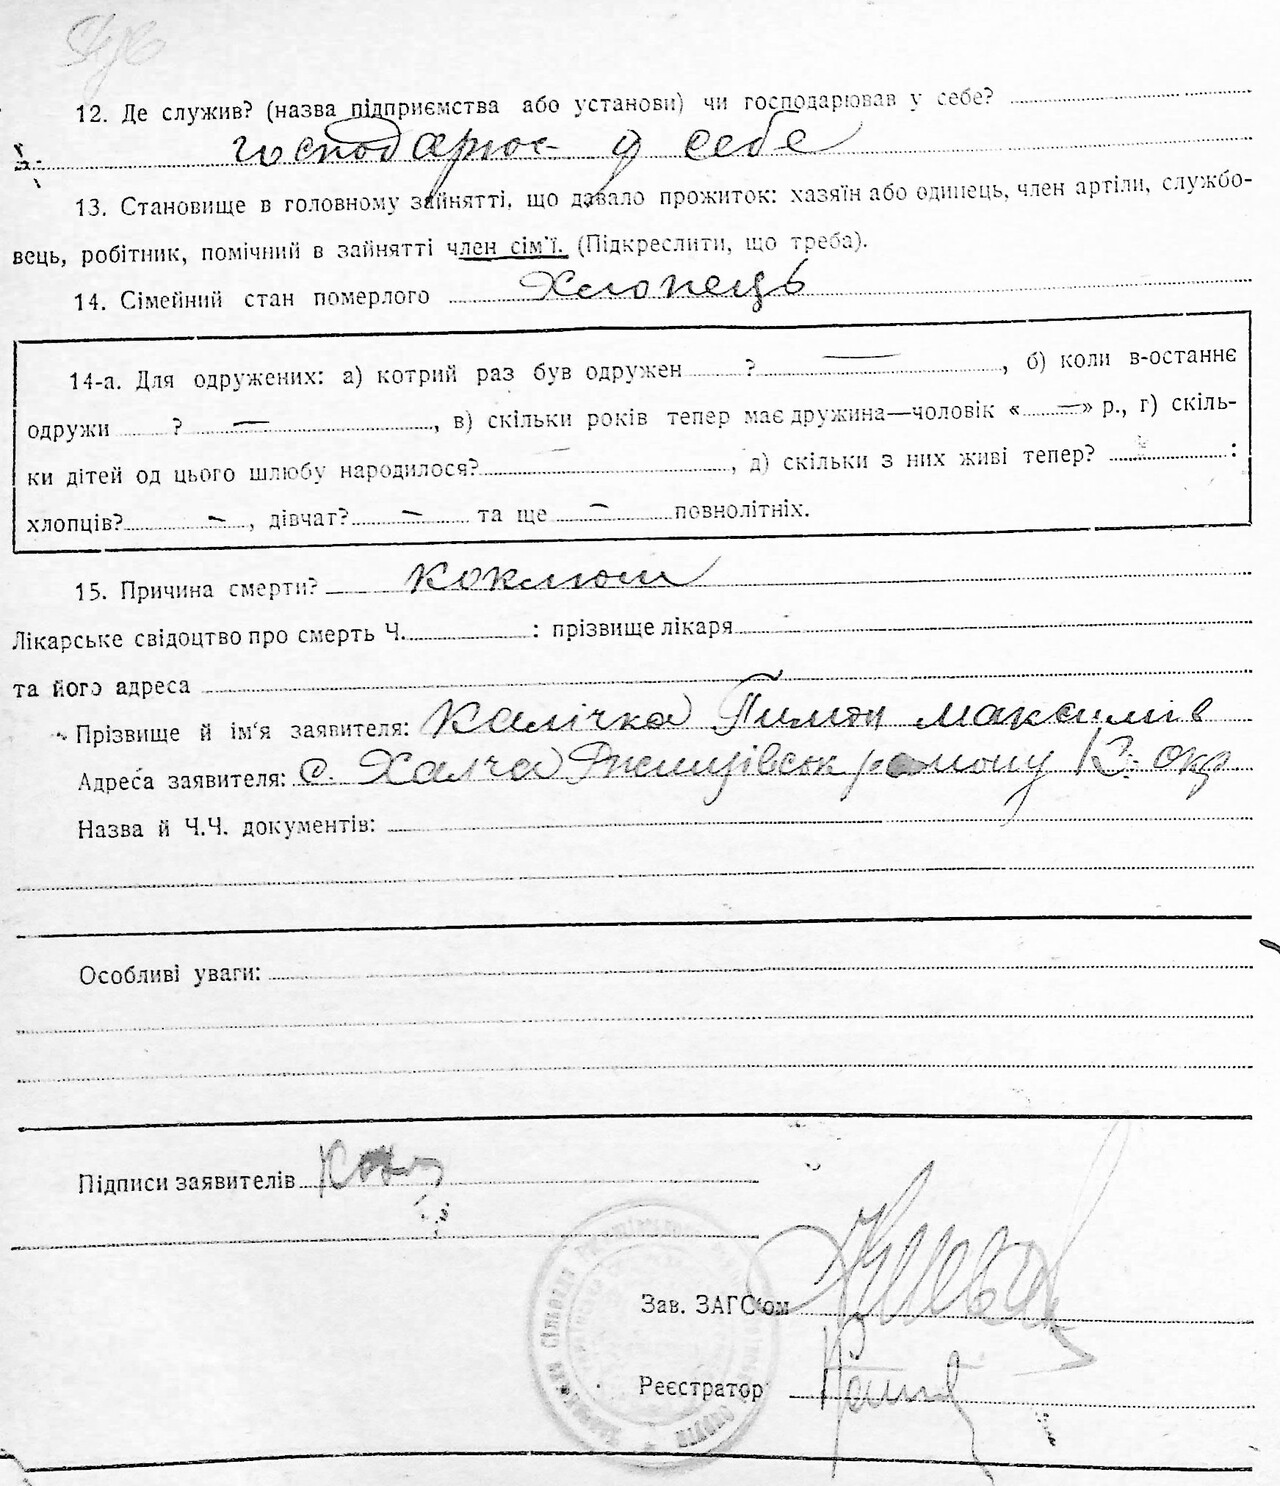 12. Де служив? (назва підприємства або установи) чи господарював у себе?
господарює у себе
13. Становище в головному зайнятті, що давало прожиток: хазяїн або одинець, член артіли, службо-
вець, робітник, помічний в зайнятті член сім'ї. (Підкреслити, що треба).
14. Сімейний стан померлого Хлопець
14-а. Для одружених: а) котрий раз був одружен ? —, б) коли в-останнє
одружи ? —, в) скільки років тепер має дружина—чоловік «—» р., г) скіль-
ки дітей од цього шлюбу народилося? —, д) скільки з них живі тепер? :
хлопців? —, дівчат? — та ще — повнолітніх.
15. Причина смерти? коклюш
Лікарське свідоцтво про смерть Ч. : прізвище лікаря
та його адреса
Прізвище й ім'я заявителя: Калічка Пимон Максимів
Адреса заявителя: с. Халча Ржищівськ району К. окр.
Назва й Ч.Ч. документів:
Особливі уваги:
Підписи заявителів
Зав. ЗАГС'ом
Реєстратор